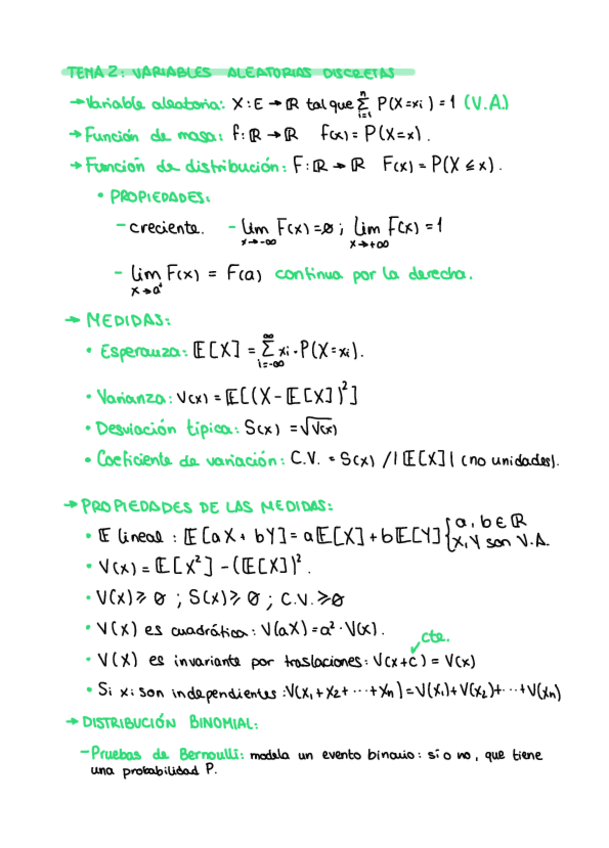 TEMA 2: VARIABLES ALEATORIAS DISCRETAS
→ Variable aleatoria: X: E → ℝ tal que Σ_{i=1}^{n} P(X=xi) = 1 (V.A.)
→ Función de masa: f: ℝ → ℝ f(x) = P(X=x).
→ Función de distribución: F: ℝ → ℝ F(x) = P(X ≤ x).
• PROPIEDADES:
- creciente. - lim_{x→-∞} F(x) = 0; lim_{x→+∞} F(x) = 1
- lim_{x→a⁺} F(x) = F(a) continua por la derecha.
→ MEDIDAS:
• Esperanza: 𝔼[X] = Σ_{i=-∞}^{∞} xi · P(X=xi).
• Varianza: V(x) = 𝔼[(X - 𝔼[X])²]
• Desviación típica: S(x) = √V(x)
• Coeficiente de variación: C.V. = S(x) / |𝔼[X]| (no unidades).
→ PROPIEDADES DE LAS MEDIDAS:
• 𝔼 lineal: 𝔼[aX + bY] = a𝔼[X] + b𝔼[Y] { a, b ∈ ℝ
X, Y son V.A.
• V(x) = 𝔼[X²] - (𝔼[X])².
• V(X) ≥ 0; S(x) ≥ 0; C.V. ≥ 0
• V(X) es cuadrática: V(aX) = a² · V(x).
cte.
• V(X) es invariante por traslaciones: V(x+c) = V(x)
• Si xi son independientes: V(x₁ + x₂ + ... + xn) = V(x₁) + V(x₂) + ... + V(xn)
→ DISTRIBUCIÓN BINOMIAL:
- Pruebas de Bernoulli: modela un evento binario: sí o no, que tiene
una probabilidad P.